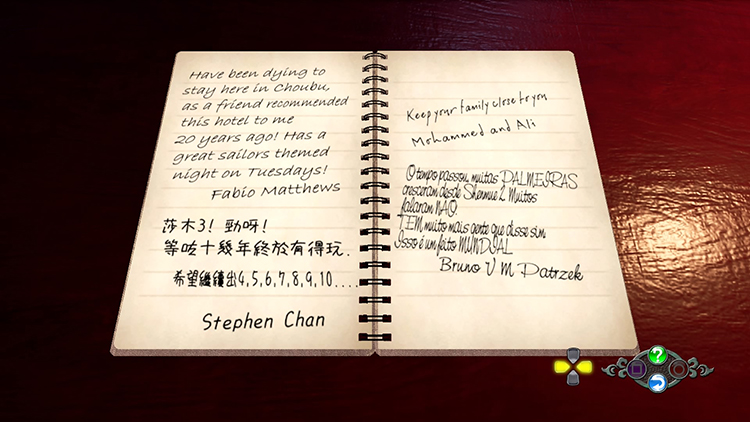 Have been dying to
stay here in Choubu,
as a friend recommended
this hotel to me
20 years ago! Has a
great sailors themed
night on Tuesdays!
Fabio Matthews
莎木3! 勁呀!
等咗十幾年終於有得玩.
希望繼續出4,5,6,7,8,9,10....
Stephen Chan
Keep your family close to you
Mohammed and Ali
O tempo passou, muitas PALMEIRAS
cresceram desde Shenmue 2. Muitos
falaram NAO.
TEM muito mais gente que disse sim.
Isso é um feito MUNDIAL
Bruno V M Patrzek
?